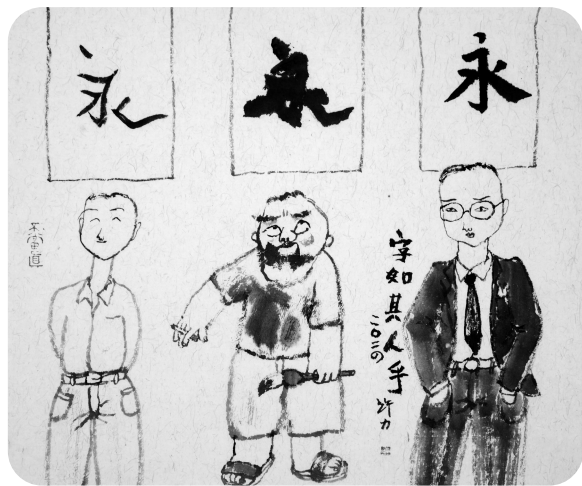 永
永
永
字如其人乎
二〇二〇
许力